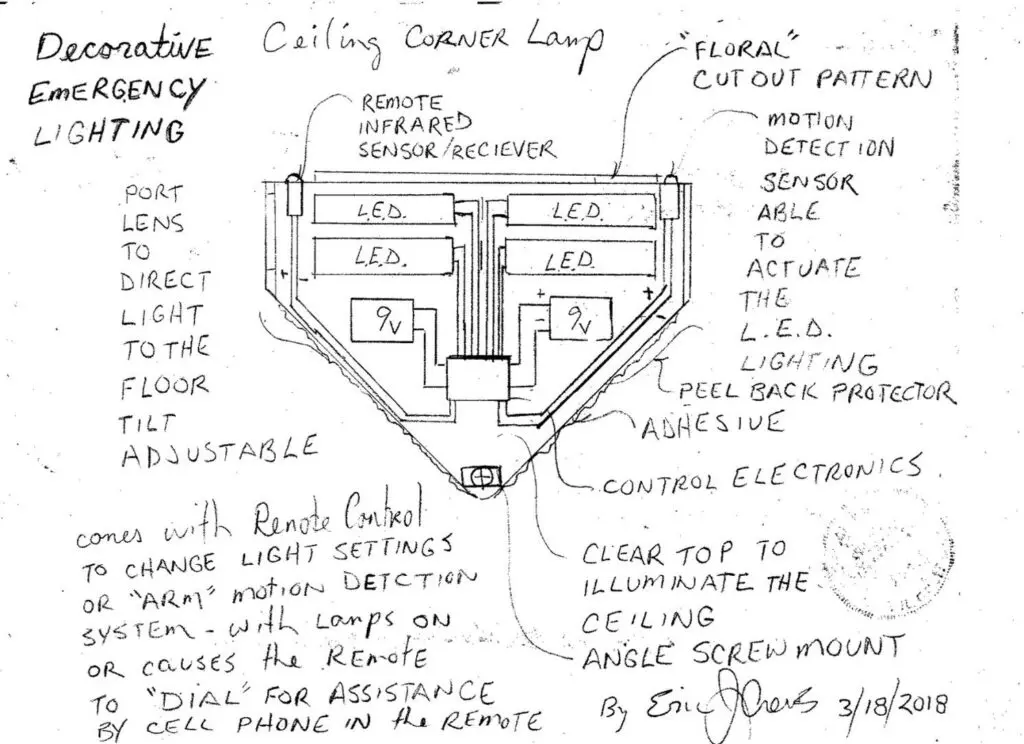 Decorative
EMERGENCY
LIGHTING
Ceiling CORNER Lamp
"FLORAL"
CUT OUT PATTERN
REMOTE
INFRARED
SENSOR/RECIEVER
MOTION
DETECTION
SENSOR
ABLE
TO
ACTUATE
THE
L.E.D.
LIGHTING
PORT
LENS
TO
DIRECT
LIGHT
TO THE
FLOOR
TILT
ADJUSTABLE
L.E.D.
L.E.D.
L.E.D.
L.E.D.
+ -
+
-
+
-
9v
9v
PEEL BACK PROTECTOR
ADHESIVE
CONTROL ELECTRONICS
CLEAR TOP TO
ILLUMINATE THE
CEILING
ANGLE SCREW MOUNT
comes with Remote Control
TO CHANGE LIGHT SETTINGS
OR "ARM" MOTION DETCTION
SYSTEM - with LAMPS ON
OR CAUSES the REMOTE
TO "DIAL" FOR ASSISTANCE
BY CELL PHONE IN the REMOTE
By Eric J 3/18/2018